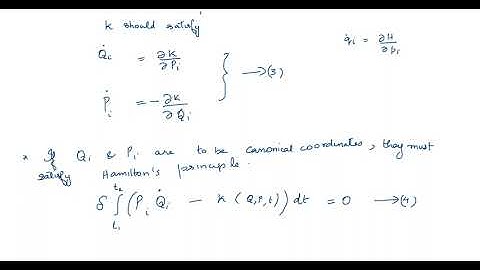 K should satisfy
Q̇i = ∂K/∂Pi
q̇i = ∂H/∂pi
Ṗi = -∂K/∂Qi } → (3)
* If Qi & Pi are to be canonical coordinates, they must
satisfy Hamilton's principle.
δ ∫_{t1}^{t2} (Pi Q̇i - K(Q,P,t)) dt = 0 → (4)